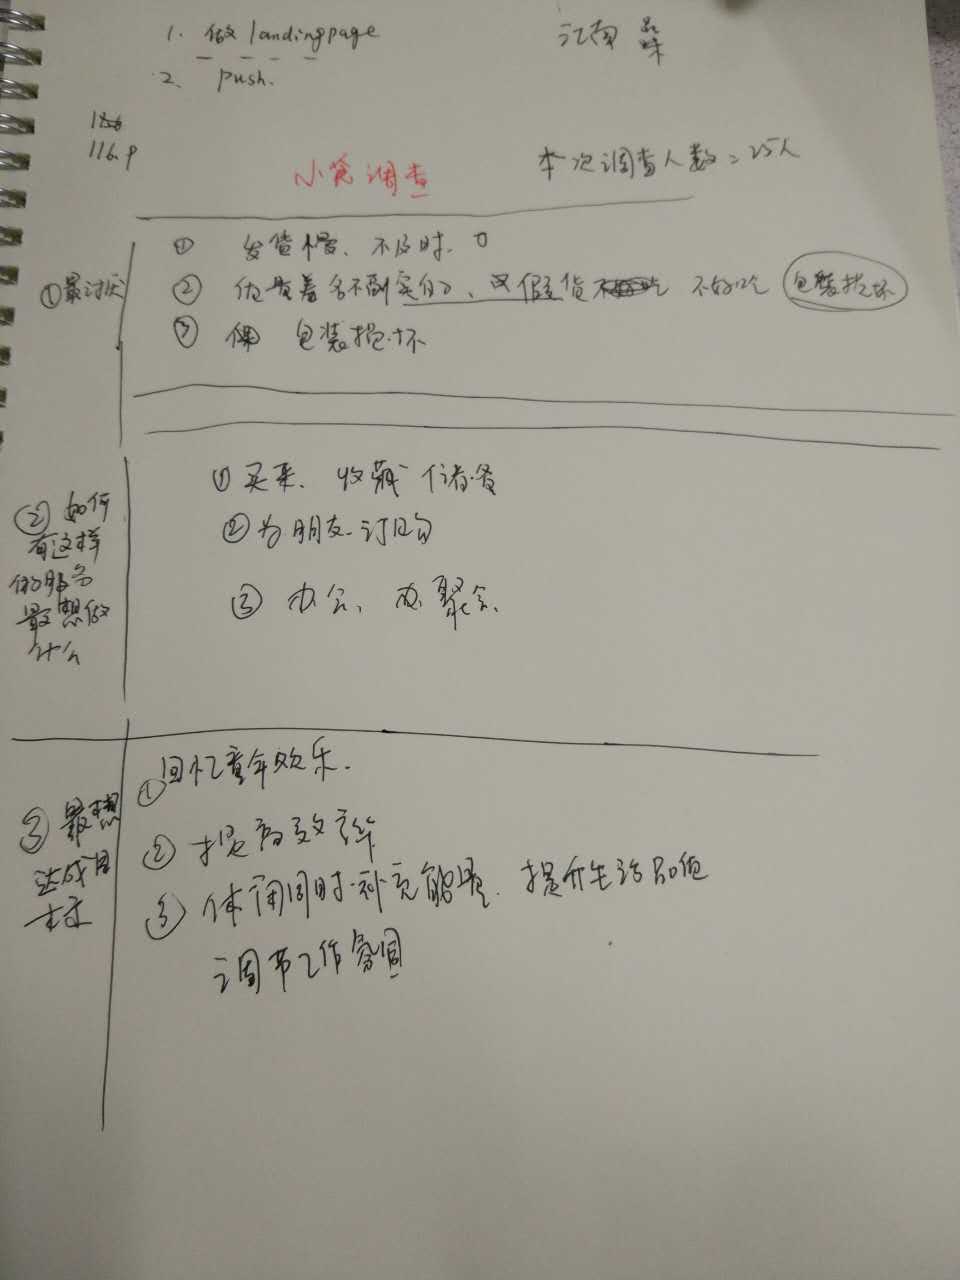 1. 做 landingpage
江南 品味
2. push.
116.9
小范调查
本次调查人数=25人
①最讨厌
① 发货慢、不及时、
② 名不副实的、假货 不好吃 包装损坏
③ 包装损坏
② 如何
有这样
的服务
最想做
什么
① 买来、收藏储备
② 为朋友订购
③ 办公、办聚会、
③ 最想
达成目
标
① 回忆童年欢乐.
② 提高效率
③ 休闲同时补充能量. 提升生活品位
调节工作氛围